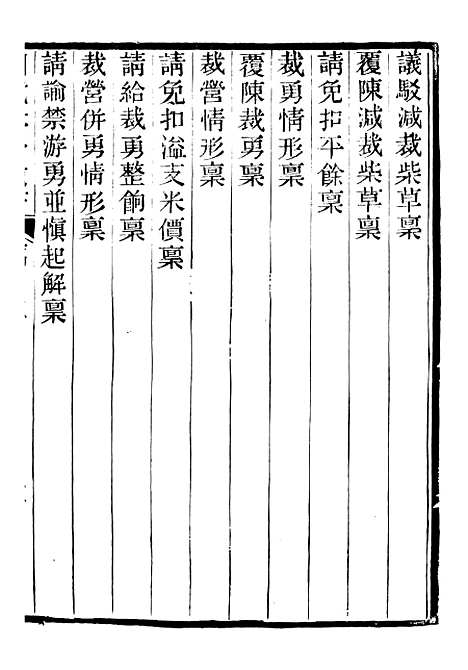 議駁減裁柴草稟
覆陳減裁柴草稟
請免扣平餘稟
裁勇情形稟
覆陳裁勇稟
裁營情形稟
請免扣溢支米價稟
請給裁勇整餉稟
裁營併勇情形稟
請諭禁游勇並愼起解稟